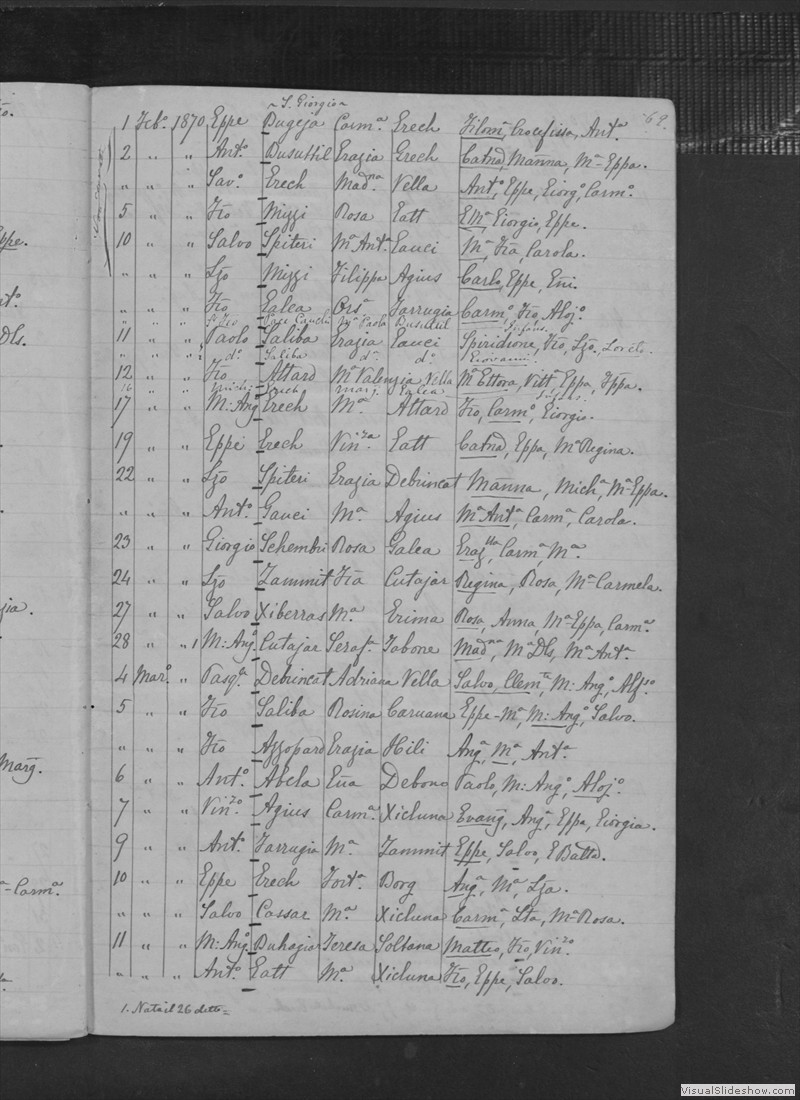 ~ S. Giorgio ~
62.
1 Feb.º 1870 Eppe Bugeja Carm.ª Grech Filom, Crocefissa, Ant.ª
2 " " Ant.º Busuttil Grazia Grech Catnd, Manna, M.ª Eppa.
" " " Sav.º Grech Mad.na Vella Ant.º, Eppe, Giorg.º, Carm.º
5 " " Fco Mizzi Rosa Gatt E M.ª Giorgio, Eppe.
10 " " Salvo Spiteri M.ª Ant.ª Gauci M.ª, Fca, Carola.
" " " Lzo Mizzi Filippa Agius Carlo, Eppe, Eni.
" " " Fco Galea Ors.ª Farrugia Carm.º, Fco, Aloj.º
" " " Pace M.ª Paola Busuttil
11 " " Paolo Saliba Grazia Gauci Spiridione, Fco, Lzo, Loreto.
" " " d.º Saliba d.ª d.º Giovanni.
12 " " Fco Attard M.ª Valenzia Vella M.ª Ettora, Vitt.ª, Eppa, Fppa.
16 " " Grech Marg. Galea
17 " " M: Ang.º Grech M.ª Attard Fco, Carm.º, Giorgio.
19 " " Eppe Grech Vin.za Gatt Catnd, Eppa, M.ª Regina.
22 " " Lzo Spiteri Grazia Debrincat Manna, Mich.ª, M.ª Eppa.
" " " Ant.º Gauci M.ª Agius M.ª Ant.ª, Carm.ª, Carola.
23 " " Giorgio Schembri Rosa Galea Graz.lla, Carm.ª, M.ª
24 " " Lzo Zammit Fca Cutajar Regina, Rosa, M.ª Carmela.
27 " " Salvo Xiberras M.ª Grima Rosa, Anna, M.ª Eppa, Carm.ª
28 " " 1 M: Ang.º Cutajar Seraf.ª Tabone Mad.na, M.ª Dls, M.ª Ant.ª
4 Mar.º " Pasq.º Debrincat Adriana Vella Salvo, Clem.te, M: Ang.º, Alf.so
5 " " Fco Saliba Rosina Caruana Eppe-M.ª, M: Ang.º, Salvo.
" " " Fco Azzopard Grazia Hili Ang.ª, M.ª, Ant.ª
6 " " Ant.º Abela Eua Debono Paolo, M: Ang.º, Aloj.º
7 " " Vin.zo Agius Carm.ª Xicluna Evang, Ang.ª, Eppa, Giorgia.
9 " " Ant.º Farrugia M.ª Zammit Eppe, Salvo, G Batta.
10 " " Eppe Grech Fort.ª Borg Ang.ª, M.ª, Lza.
" " " Salvo Cassar M.ª Xicluna Carm.ª, Lta, M.ª Rosa.
11 " " M: Ang.º Buhagiar Teresa Soltana Matteo, Fco, Vin.zo
" " " Ant.º Gatt M.ª Xicluna Fco, Eppe, Salvo.
1. Nata il 26 detto =
ppe.
Dls.
Marg.
-Carm.ª
VisualSlideshow.com